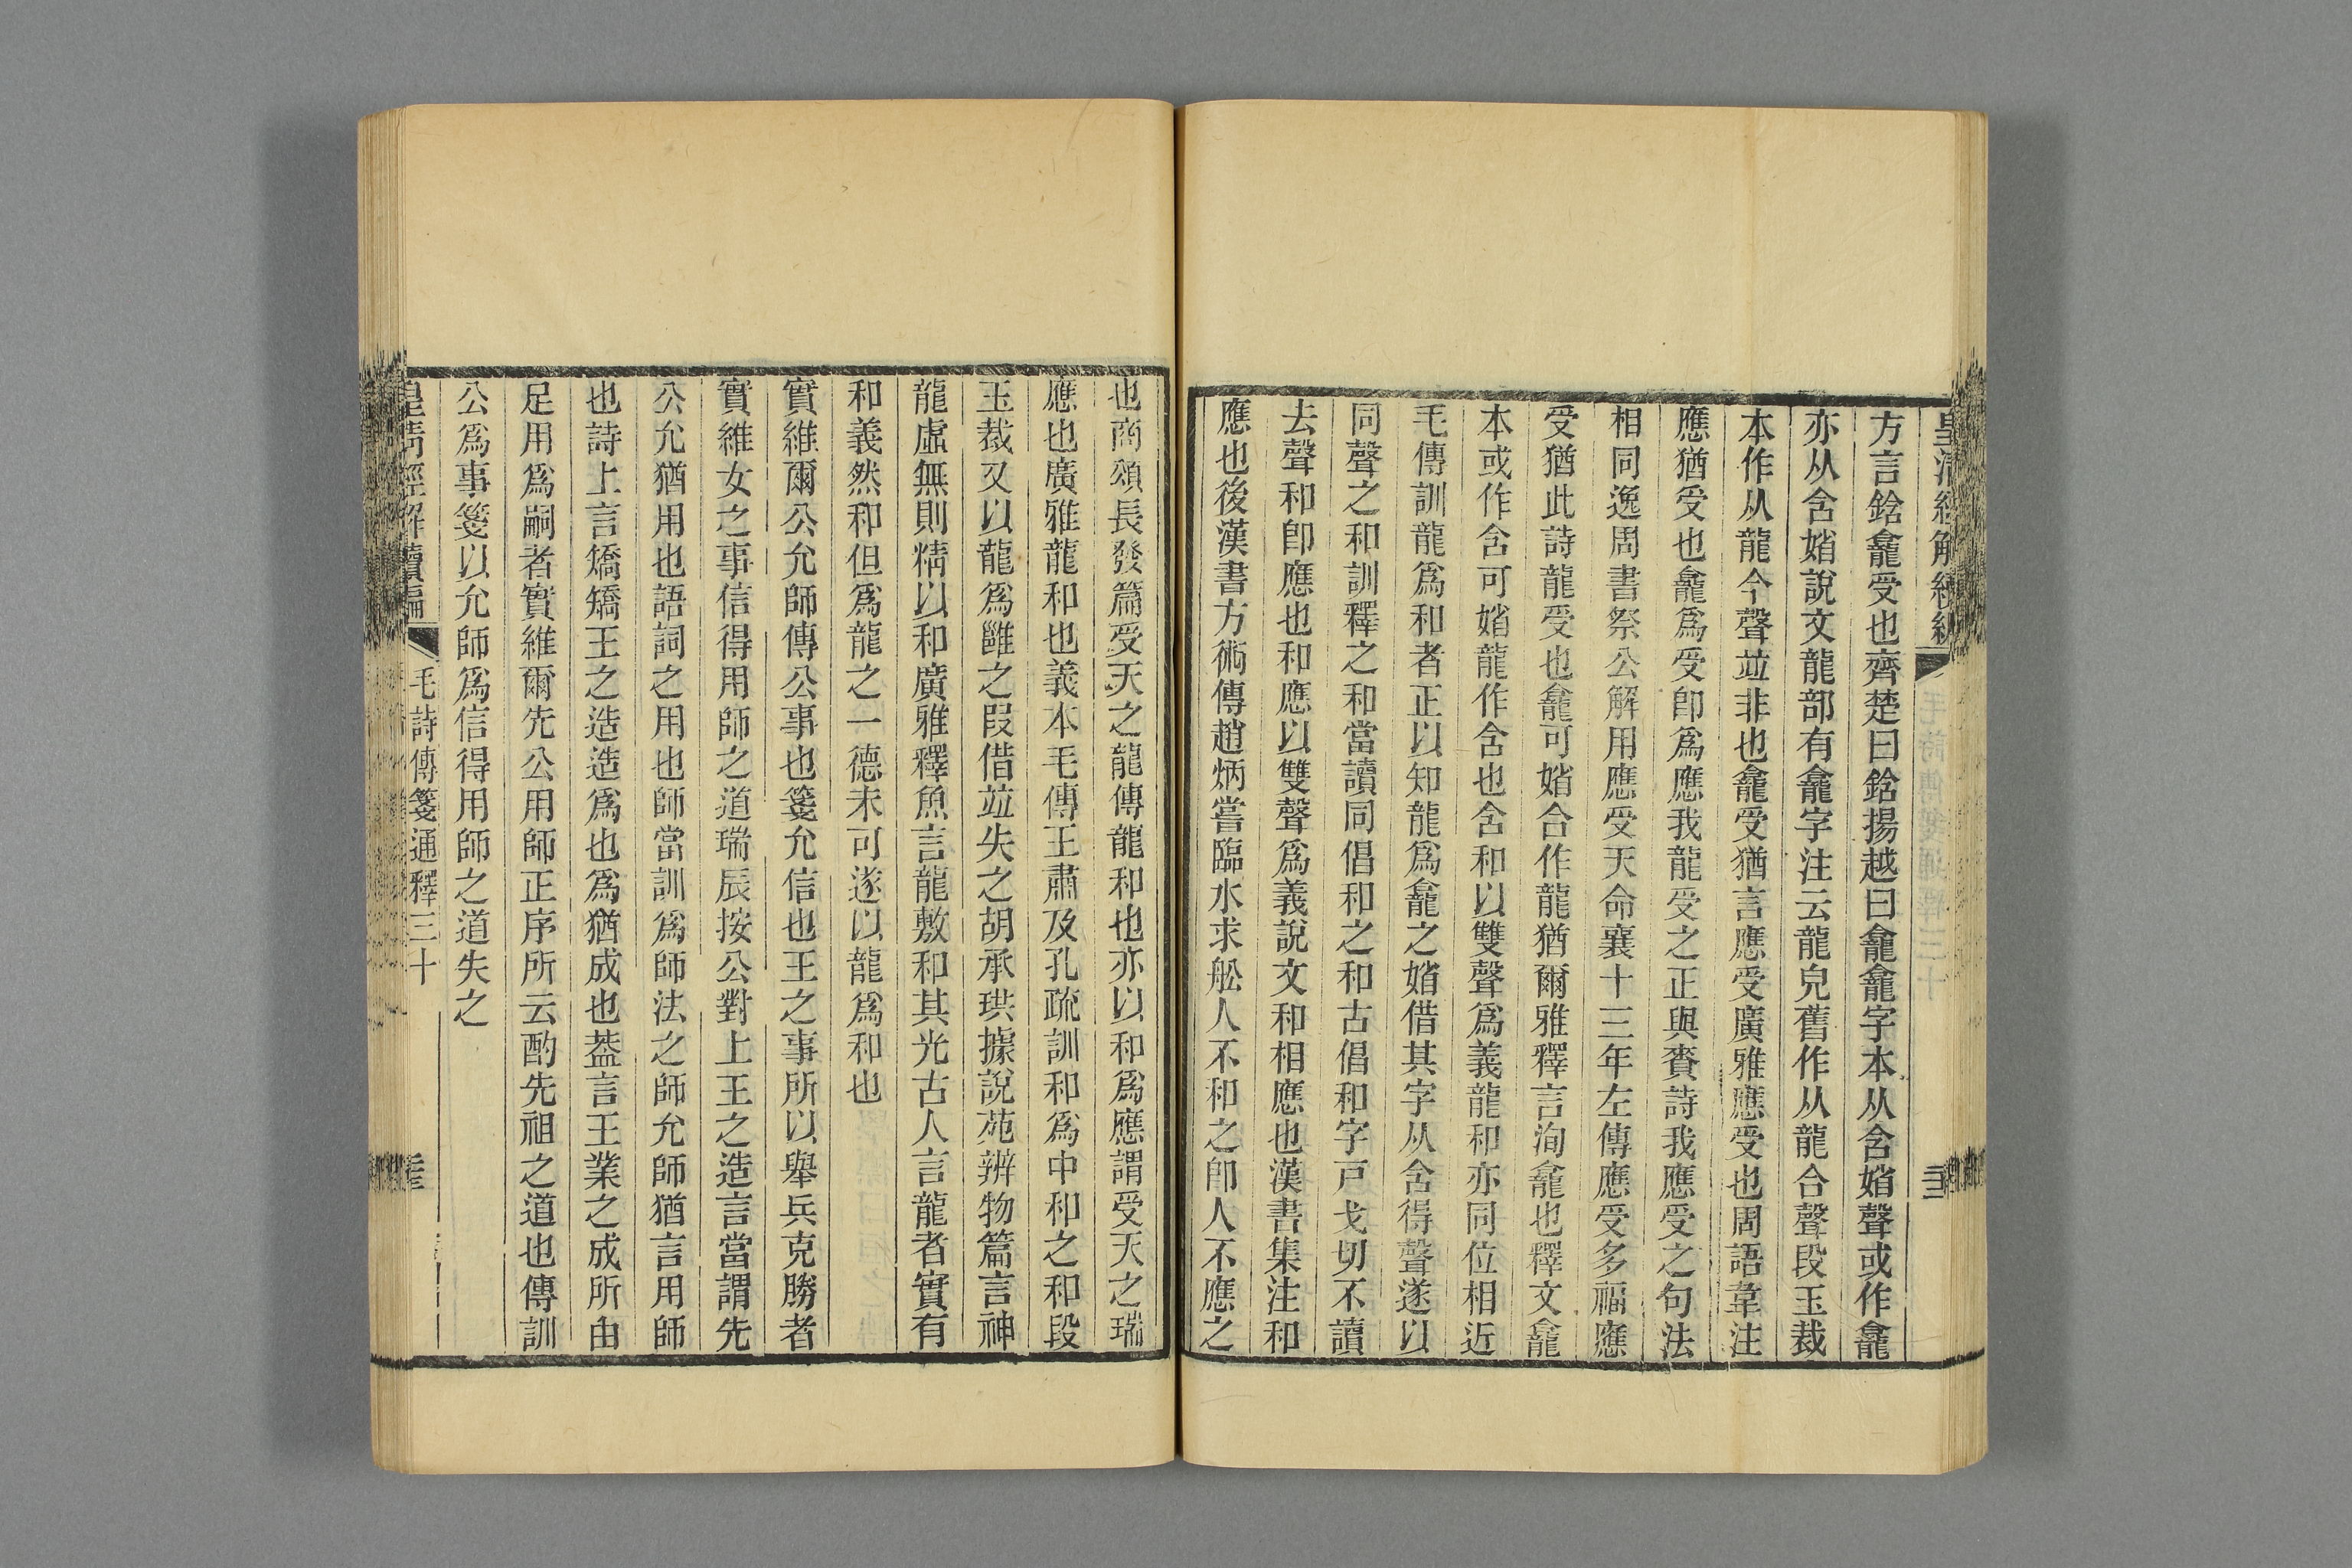 方言鋡龕受也齊楚曰鋡揚越曰龕龕字本从含㛮聲或作龕
亦从含㛮說文龍部有龕字注云龍皃舊作从龍合聲段玉裁
本作从龍今聲竝非也龕受猶言應受廣雅應受也周語韋注
應猶受也龕爲受卽爲應我龍受之正與賚詩我應受之句法
相同逸周書祭公解用應受天命襄十三年左傳應受多福應
受猶此詩龍受也龕可㛮合作龍猶爾雅釋言洵龕也釋文龕
本或作含可㛮龍作含也含和以雙聲爲義龍和亦同位相近
毛傳訓龍爲和者正以知龍爲龕之㛮借其字从含得聲遂以
同聲之和訓釋之和當讀同倡和之和古倡和字戸戈切不讀
去聲和卽應也和應以雙聲爲義說文和相應也漢書集注和
應也後漢書方術傳趙炳嘗臨水求舩人不和之卽人不應之
也商頌長發篇受天之龍傳龍和也亦以和爲應謂受天之瑞
應也廣雅龍和也義本毛傳王肅及孔疏訓和爲中和之和段
玉裁又以龍爲雝之叚借竝失之胡承珙據說苑辨物篇言神
龍虛無則精以和廣雅釋魚言龍敷和其光古人言龍者實有
和義然和但爲龍之一德未可遂以龍爲和也
實維爾公允師傳公事也箋允信也王之事所以舉兵克勝者
實維女之事信得用師之道瑞辰按公對上王之造言當謂先
公允猶用也語詞之用也師當訓爲師法之師允師猶言用師
也詩上言矯矯王之造造爲也爲猶成也葢言王業之成所由
足用爲嗣者實維爾先公用師正序所云酌先祖之道也傳訓
公爲事箋以允師爲信得用師之道失之
皇清經解續編
毛詩傳箋通釋三十